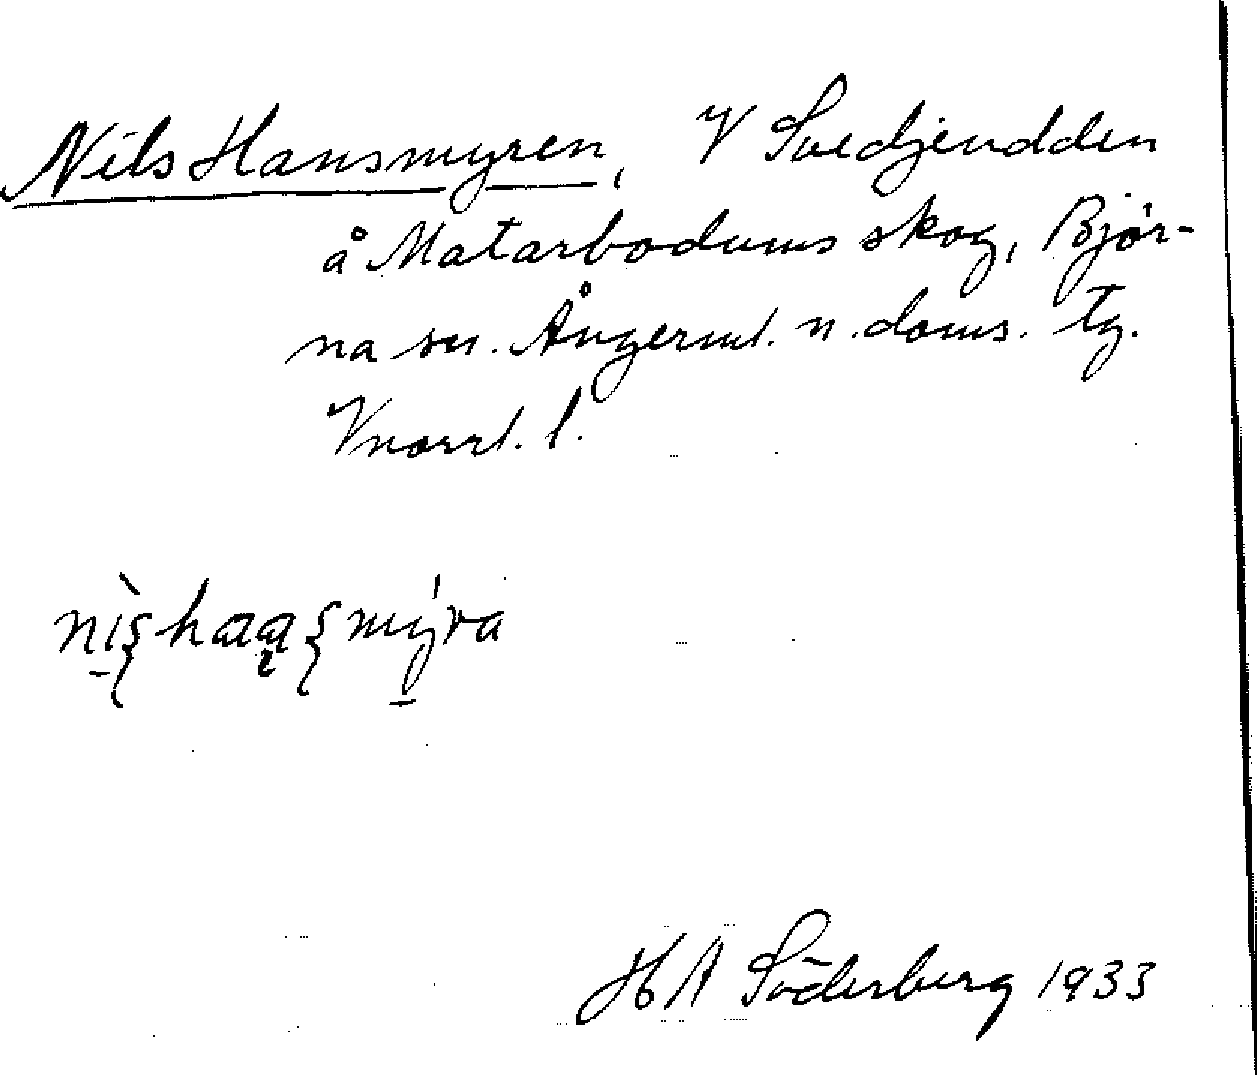 Nils Hansmyren, V Svedjeudden
å Matarbodums skog, Björ-
na sn. Ångerml. n. doms. tg.
Vnorrl. l.
HA Söderberg 1933